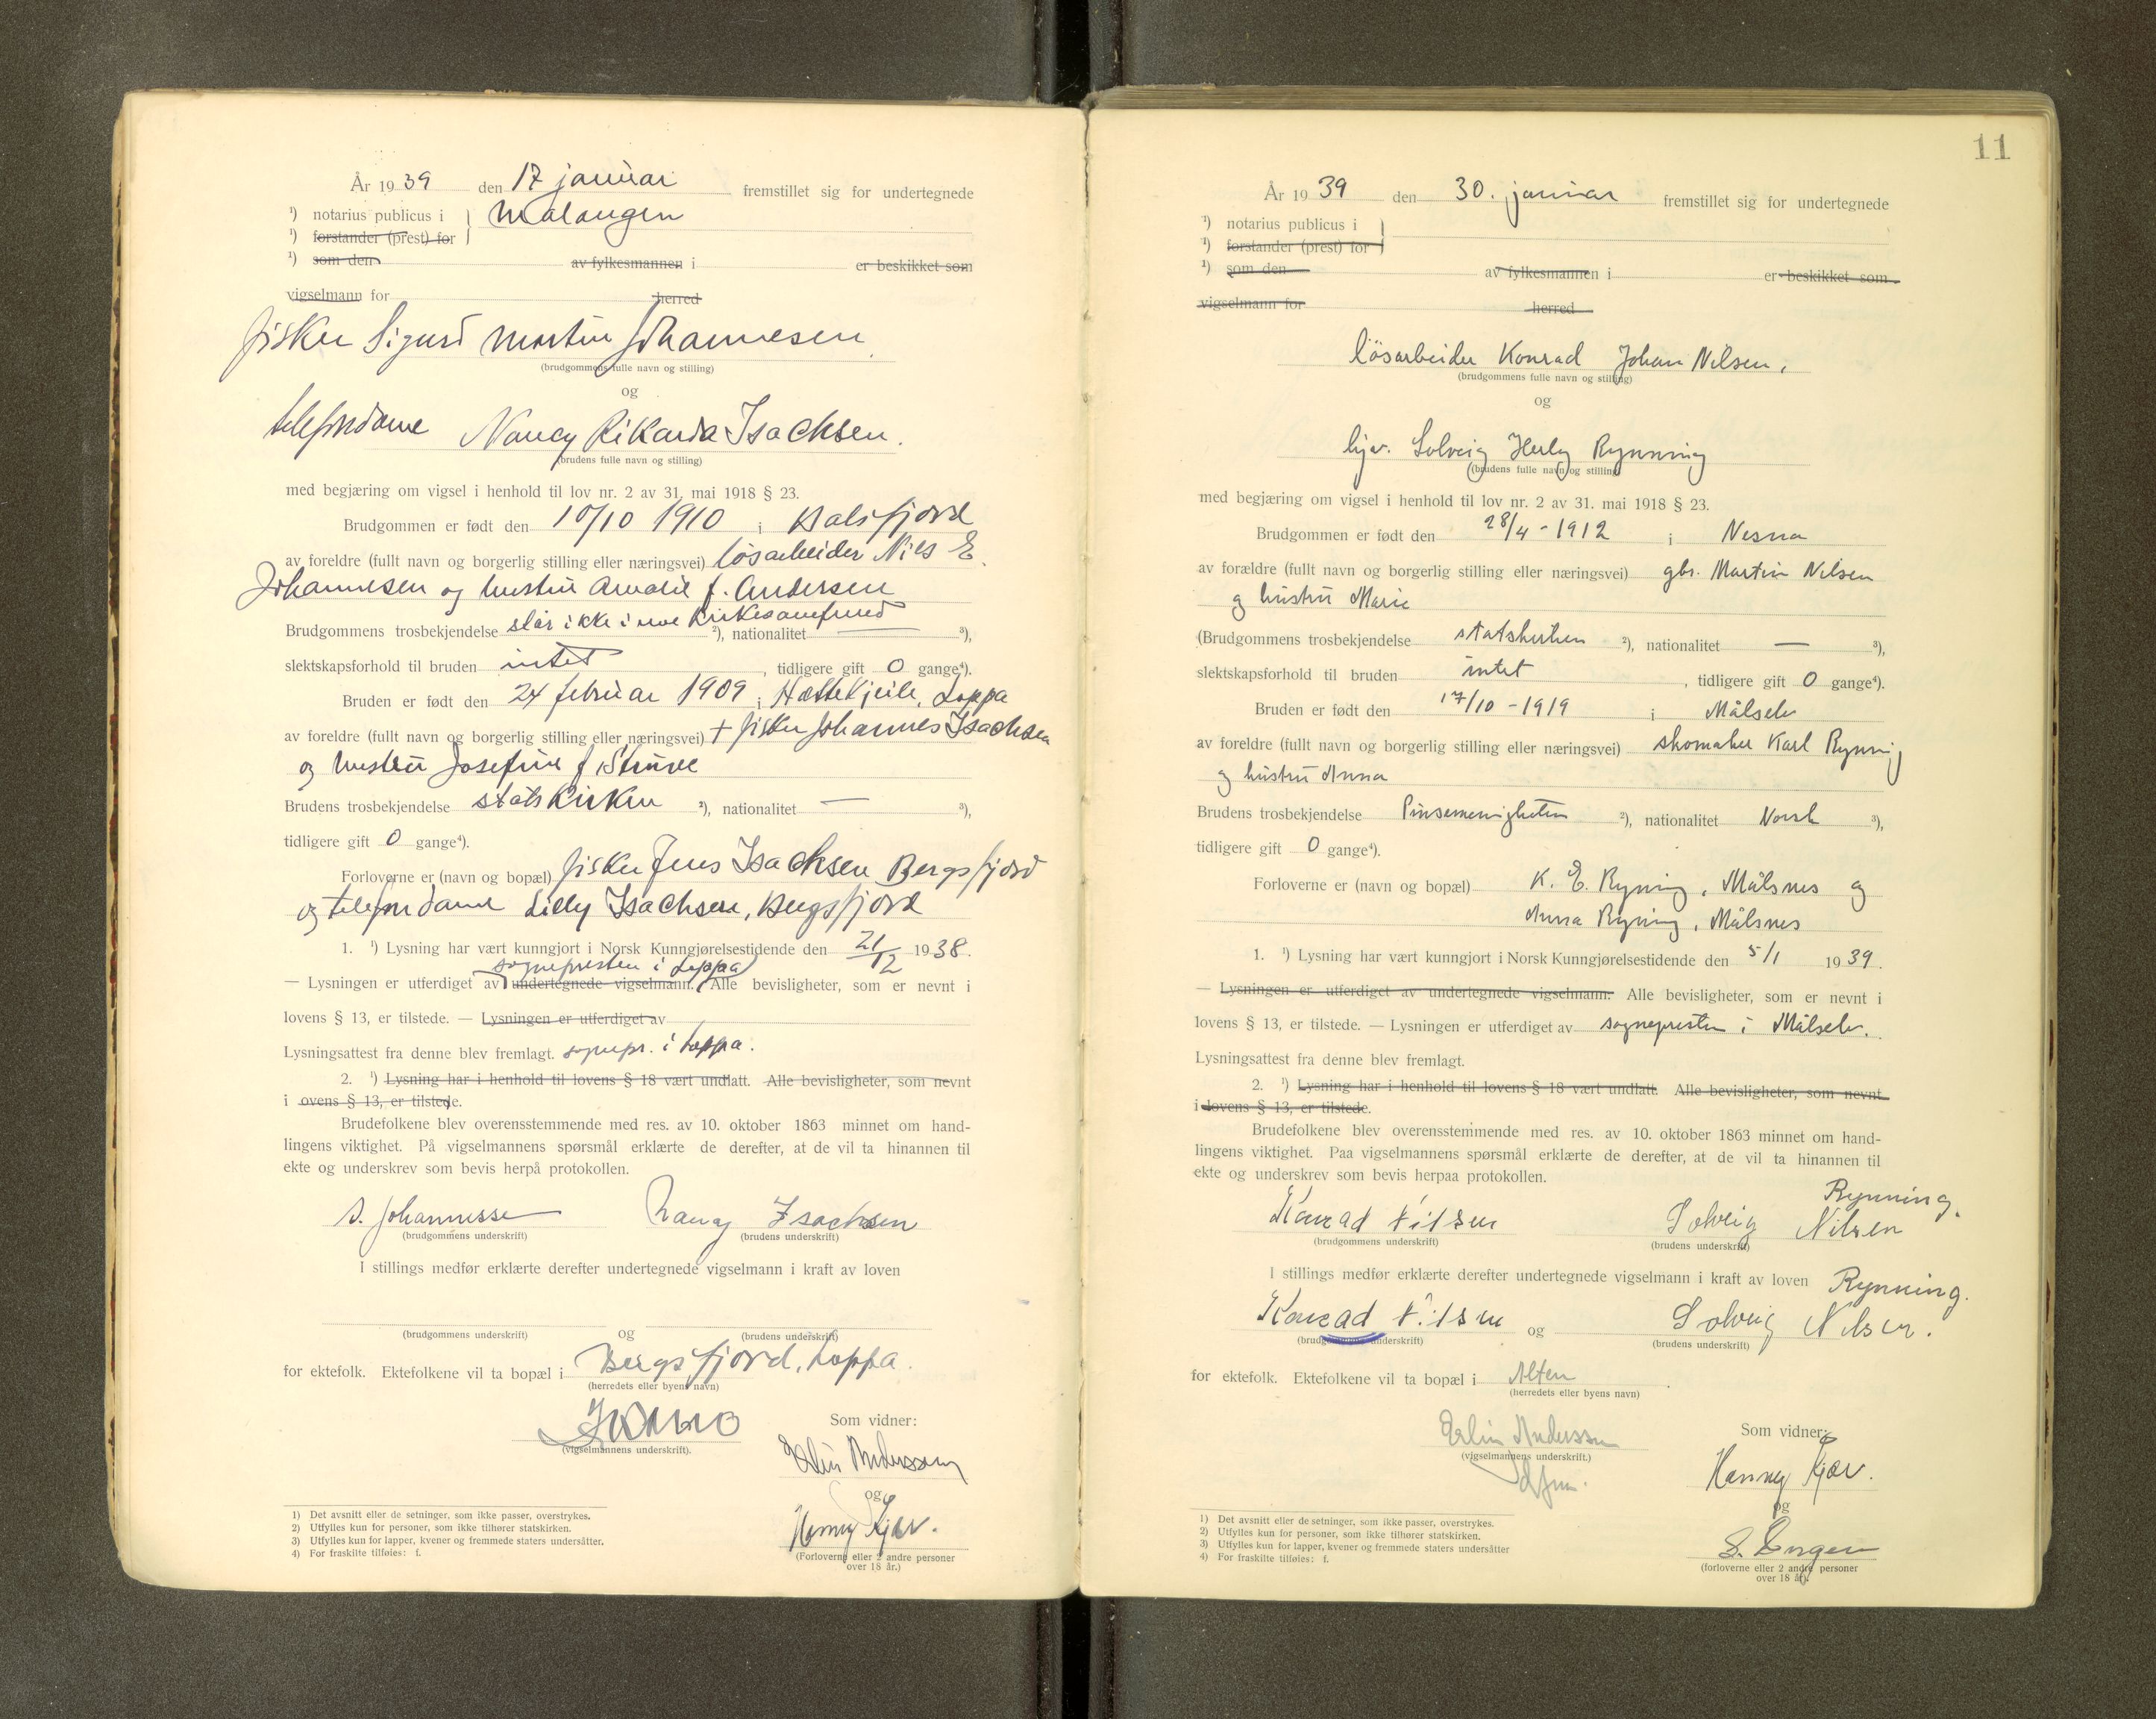 År 1939 den 17 januar fremstillet sig for undertegnede
¹) notarius publicus i Malangen
¹) forstander (prest) for
¹) som den av fylkesmannen i er beskikket som
vigselmann for herred
fisker Sigurd Martin Johannesen
(brudgommens fulle navn og stilling)
og
telefondame Nancy Rikarda Isachsen.
(brudens fulle navn og stilling)
med begjæring om vigsel i henhold til lov nr. 2 av 31. mai 1918 § 23.
Brudgommen er født den 10/10 1910 i Balsfjord
av foreldre (fullt navn og borgerlig stilling eller næringsvei) løsarbeider Nils E.
Johannesen og hustru Amalie f. Andersen
Brudgommens trosbekjendelse står ikke i noe kirkesamfund ²), nationalitet — ³),
slektskapsforhold til bruden intet, tidligere gift 0 gange⁴).
Bruden er født den 24 februar 1909 i Løppa
av foreldre (fullt navn og borgerlig stilling eller næringsvei) + fisker Johannes Isachsen
og hustru Josefine f. Struve
Brudens trosbekjendelse statskirken ²), nationalitet — ³),
tidligere gift 0 gange⁴).
Forloverne er (navn og bopæl) fisker Jens Isachsen Bergsfjord
og telefondame Lilly Isachsen, Bergsfjord
1. ¹) Lysning har vært kunngjort i Norsk Kunngjørelsestidende den 21/12 1938.
sognepresten i Loppa
— Lysningen er utferdiget av undertegnede vigselmann. Alle bevisligheter, som er nevnt i
lovens § 13, er tilstede. — Lysningen er utferdiget av
Lysningsattest fra denne blev fremlagt. sognepr. i Loppa.
2. ¹) Lysning har i henhold til lovens § 18 vært undlatt. Alle bevisligheter, som nevnt
i ovens § 13, er tilstede.
Brudefolkene blev overensstemmende med res. av 10. oktober 1863 minnet om hand-
lingens viktighet. På vigselmannens spørsmål erklærte de derefter, at de vil ta hinannen til
ekte og underskrev som bevis herpå protokollen.
S. Johannesse Nancy Isachsen
(brudgommens underskrift) (brudens underskrift)
I stillings medfør erklærte derefter undertegnede vigselmann i kraft av loven
og
(brudgommens underskrift) (brudens underskrift)
for ektefolk. Ektefolkene vil ta bopæl i Bergsfjord, Loppa.
(herredets eller byens navn)
Som vidner:
(vigselmannens underskrift).
Erlin Anderssen
og
Hanney Kjær.
(Forloverne eller 2 andre personer
over 18 år.)
1) Det avsnitt eller de setninger, som ikke passer, overstrykes.
2) Utfylles kun for personer, som ikke tilhører statskirken.
3) Utfylles kun for lapper, kvener og fremmede staters undersåtter.
4) For fraskilte tilføies: f.
11
År 1939 den 30. januar fremstillet sig for undertegnede
¹) notarius publicus i
¹) forstander (prest) for
¹) som den av fylkesmannen i er beskikket som
vigselmann for herred
lösarbeider Konrad Johan Nilsen,
(brudgommens fulle navn og stilling)
og
hjv. Solveig Herly Rynning
(brudens fulle navn og stilling)
med begjæring om vigsel i henhold til lov nr. 2 av 31. mai 1918 § 23.
Brudgommen er født den 28/4 - 1912 i Nesna
av forældre (fullt navn og borgerlig stilling eller næringsvei) gbr. Martin Nilsen
og hustru Marie
(Brudgommens trosbekjendelse statskirken ²), nationalitet — ³),
slektskapsforhold til bruden intet, tidligere gift 0 gange⁴).
Bruden er født den 17/10 - 1919 i Målselv
av foreldre (fullt navn og borgerlig stilling eller næringsvei) skomaker Karl Rynning
og hustru Anna
Brudens trosbekjendelse Pinsemenigheten ²), nationalitet Norsk ³),
tidligere gift 0 gange⁴).
Forloverne er (navn og bopæl) K. E. Ryning, Målsnes og
Anna Ryning, Målsnes
1. ¹) Lysning har vært kunngjort i Norsk Kunngjørelsestidende den 5/1 1939.
— Lysningen er utferdiget av undertegnede vigselmann. Alle bevisligheter, som er nevnt i
lovens § 13, er tilstede. — Lysningen er utferdiget av sognepresten i Målselv.
Lysningsattest fra denne blev fremlagt.
2. ¹) Lysning har i henhold til lovens § 18 vært undlatt. Alle bevisligheter, som nevnt
i lovens § 13, er tilstede.
Brudefolkene blev overensstemmende med res. av 10. oktober 1863 minnet om hand-
lingens viktighet. Paa vigselmannens spørsmål erklærte de derefter, at de vil ta hinannen til
ekte og underskrev som bevis herpaa protokollen.
Rynning.
Konrad Nilsen Solveig Nilsen
(brudgommens underskrift) (brudens underskrift)
I stillings medfør erklærte derefter undertegnede vigselmann i kraft av loven
Rynning.
Konrad Nilsen og Solveig Nilsen.
(brudgommens underskrift) (brudens underskrift)
for ektefolk. Ektefolkene vil ta bopæl i Alten
(herredets eller byens navn)
Som vidner:
Erlin Anderssen
(vigselmannens underskrift.)
Hanney Kjær.
og
S. Engen
(forloverne eller 2 andre personer
over 18 år).
1) Det avsnitt eller de setninger, som ikke passer, overstrykes.
2) Utfylles kun for personer, som ikke tilhører statskirken.
3) Utfylles kun for lapper, kvener og fremmede staters undersåtter
4) For fraskilte tilføies: f.